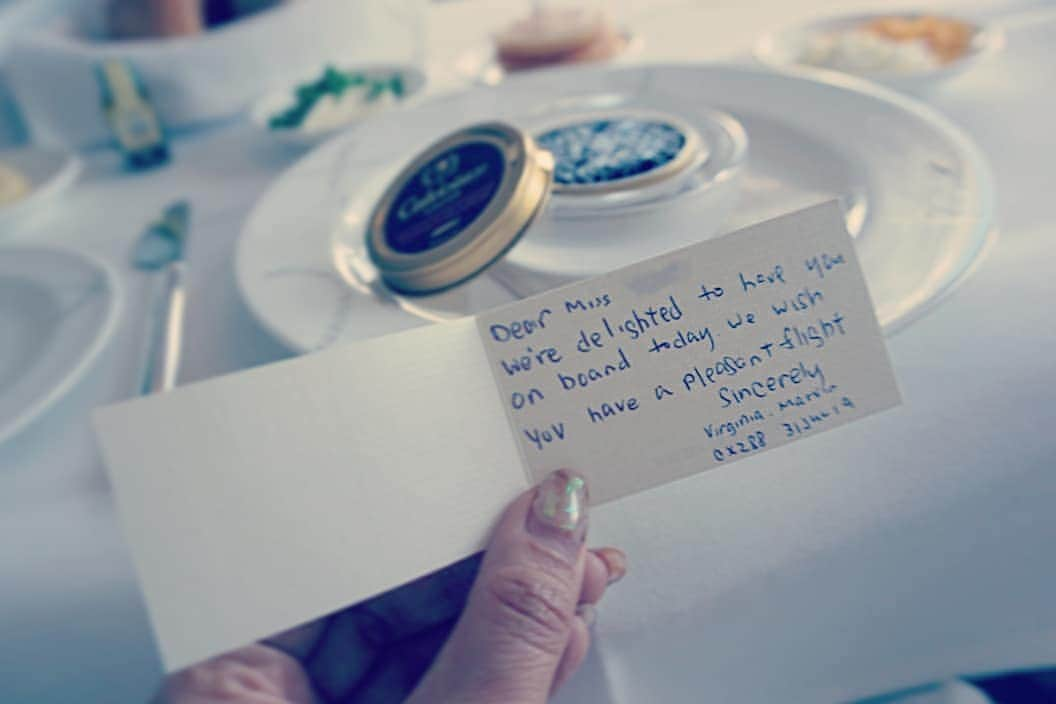 Dear Miss
we're delighted to have you
on board today. we wish
you have a pleasant flight
Sincerely
Virginia.
CX288